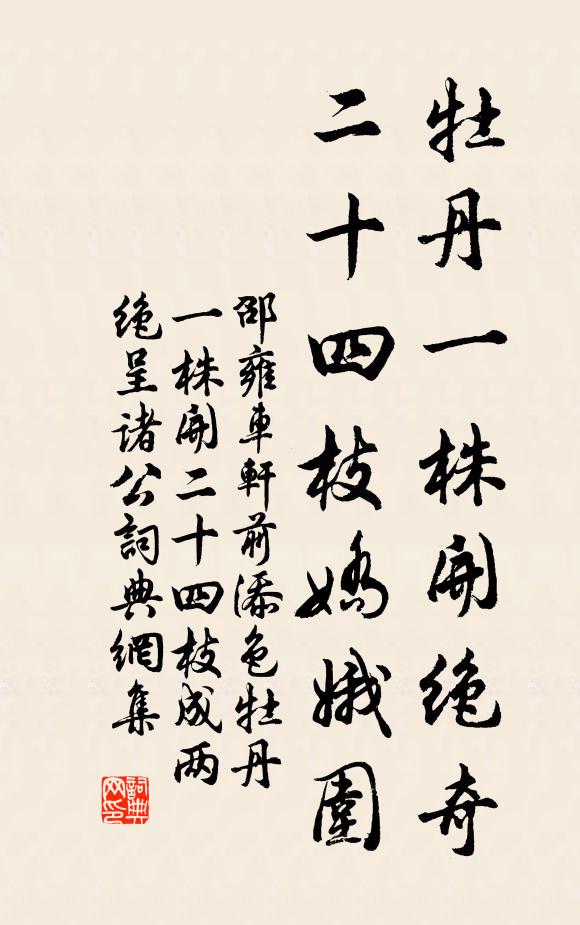 牡丹一株開絶奇
二十四枝嬌娥圍
邵雍車軒前添色牡丹
一株開二十四枝成两
絶呈诸公詞典網集
詞典
网印